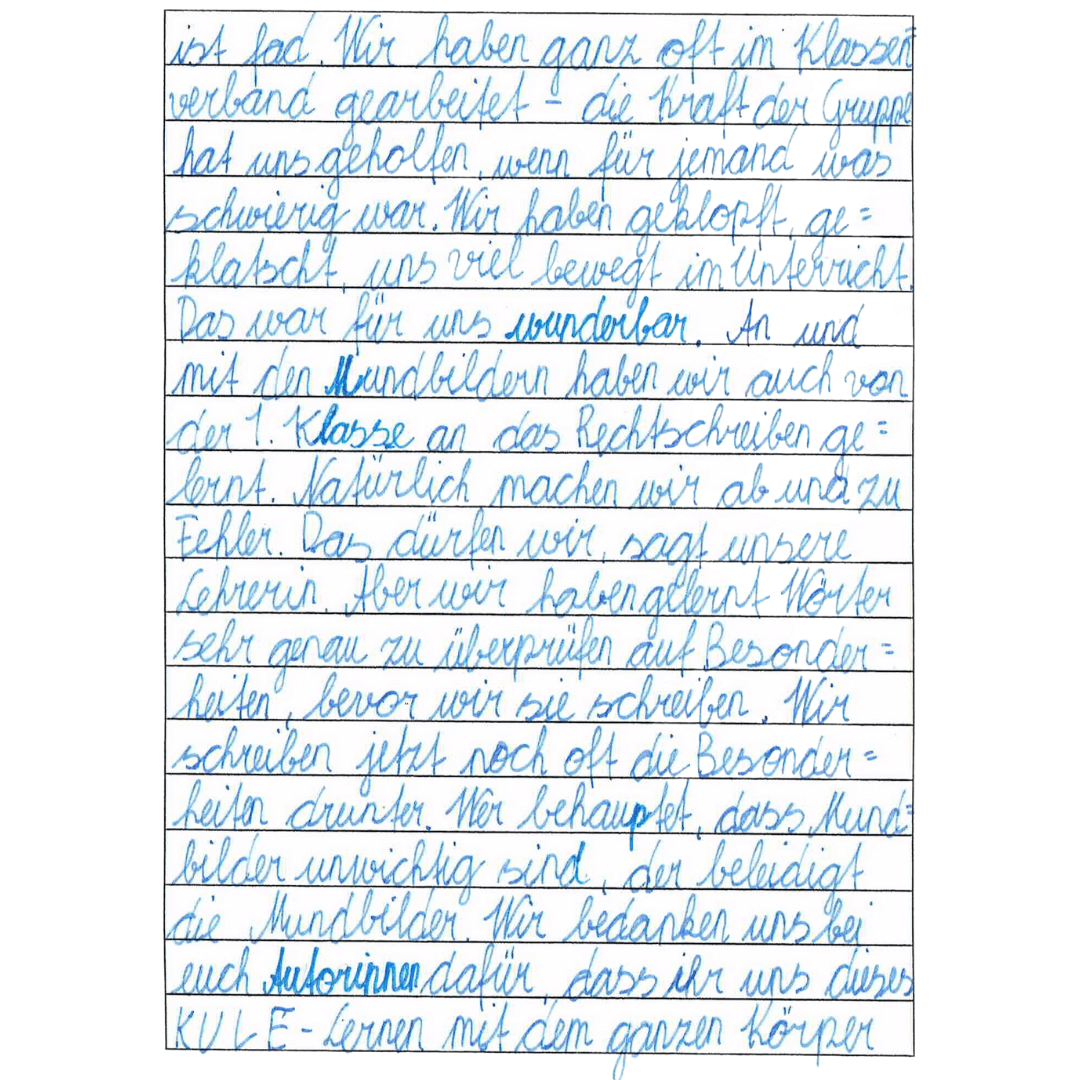 ist fad. Wir haben ganz oft im Klassen=
verband gearbeitet - die Kraft der Gruppe
hat uns geholfen, wenn für jemand was
schwierig war. Wir haben geklopft, ge=
klatscht, uns viel bewegt im Unterricht.
Das war für uns wunderbar. An und
mit den Mundbildern haben wir auch von
der 1. Klasse an das Rechtschreiben ge=
lernt. Natürlich machen wir ab und zu
Fehler. Das dürfen wir, sagt unsere
Lehrerin. Aber wir haben gelernt Wörter
sehr genau zu überprüfen auf Besonder=
heiten, bevor wir sie schreiben. Wir
schreiben jetzt noch oft die Besonder=
heiten drunter. Wer behauptet, dass Mund=
bilder unwichtig sind, der beleidigt
die Mundbilder. Wir bedanken uns bei
euch Autorinnen dafür, dass ihr uns dieses
KULE-Lernen mit dem ganzen Körper